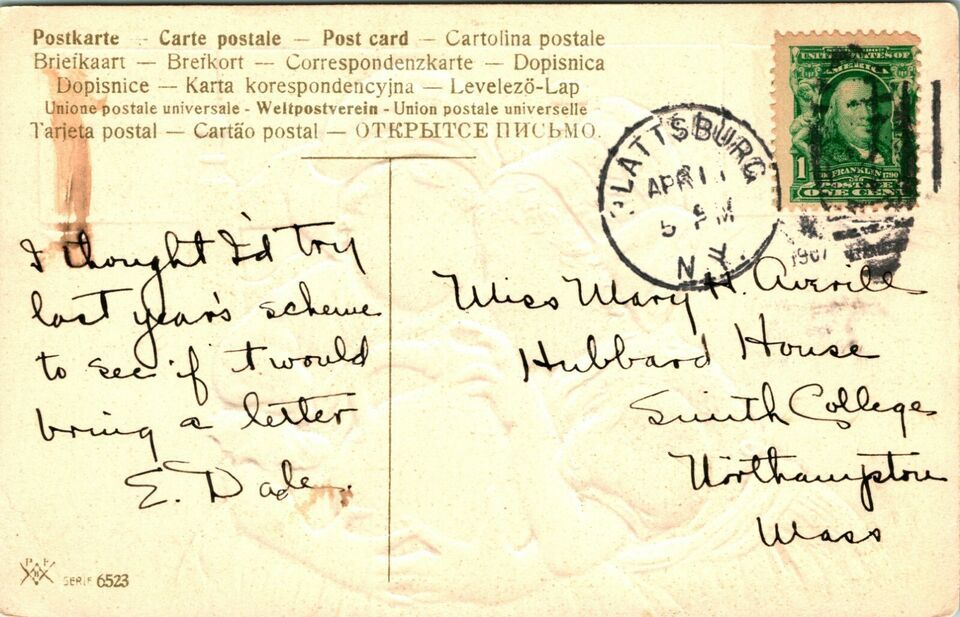 Postkarte – Carte postale – Post card – Cartolina postale
Briefkaart — Brefkort — Correspondenzkarte — Dopisnica
Dopisnice — Karta korespondencyjna — Levelezö-Lap
Unione postale universale - Weltpostverein - Union postale universelle
Tarjeta postal — Cartão postal — ОТКРЫТСЕ ПИСЬМО.
UNITED STATES OF
AMERICA
1
FRANKLIN 1790
POSTAGE
ONE CENT
PLATTSBURG
APR
5 PM
N.Y.
1907
I thought I'd try
last year's scheme
to see if 't would
bring a letter
E. Dade.
Miss Mary H. Averill
Hubbard House
Smith College
Northampton
Mass
SERIE 6523